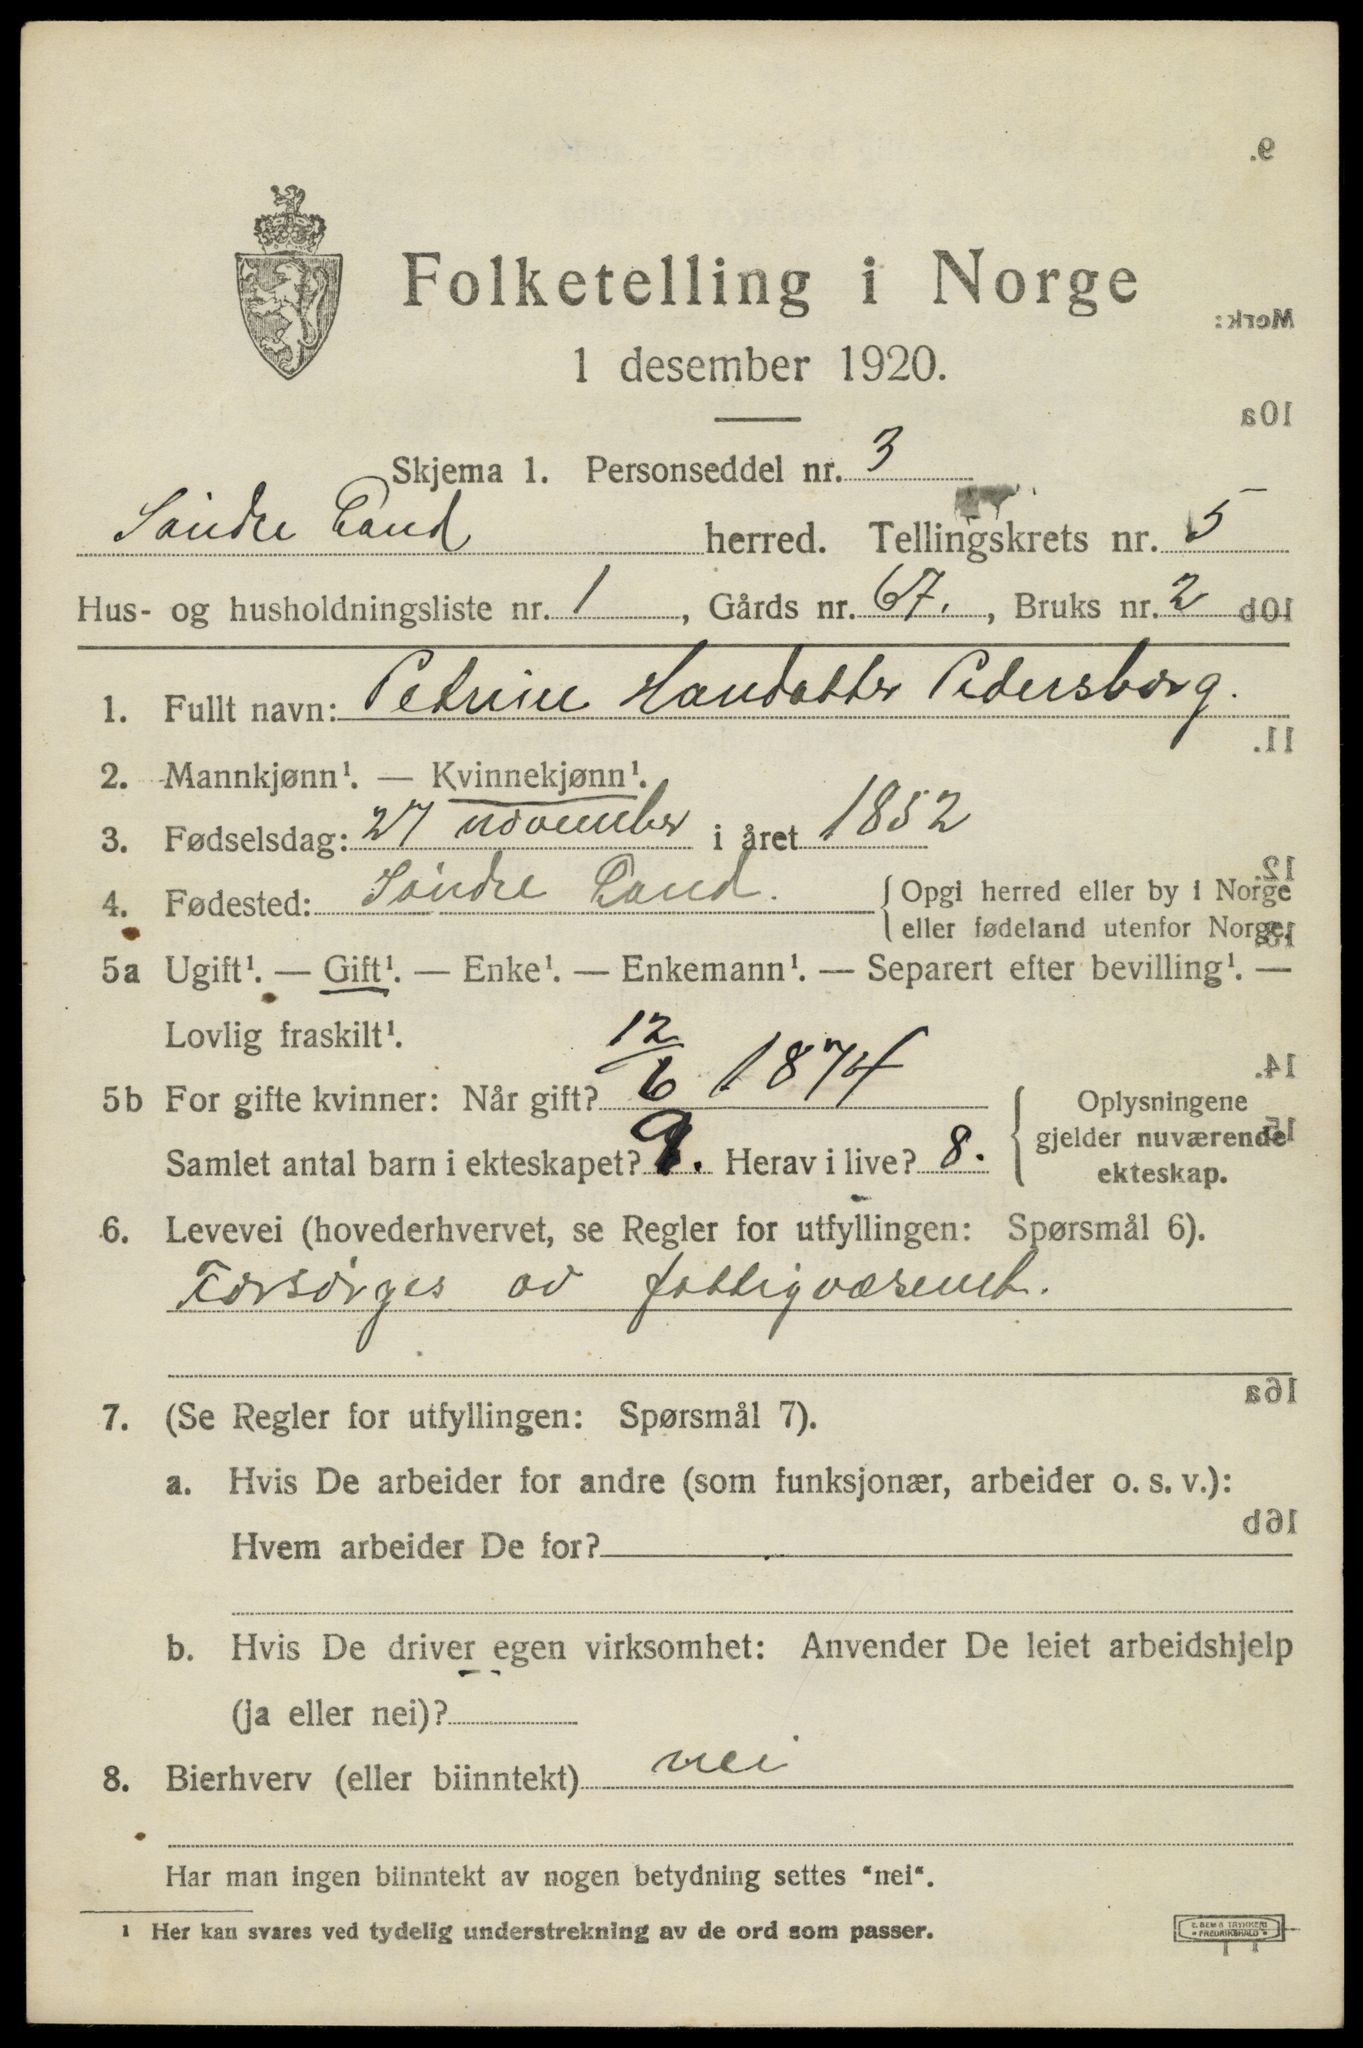 Folketelling i Norge
1 desember 1920.
Skjema 1. Personseddel nr. 3
Søndre Land herred. Tellingskrets nr. 5
Hus- og husholdningsliste nr. 1, Gårds nr. 67., Bruks nr. 2
1. Fullt navn: Petrine Hansdatter Pedersborg.
2. Mannkjønn¹. — Kvinnekjønn¹.
3. Fødselsdag: 27 november i året 1852
4. Fødested: Søndre Land. { Opgi herred eller by i Norge
eller fødeland utenfor Norge.
5a Ugift¹. — Gift¹. — Enke¹. — Enkemann¹. — Separert efter bevilling¹. —
Lovlig fraskilt¹.
5b For gifte kvinner: Når gift? 12/6 1874
Samlet antal barn i ekteskapet? 9. Herav i live? 8.
{ Oplysningene
gjelder nuværende
ekteskap.
6. Levevei (hovederhvervet, se Regler for utfyllingen: Spørsmål 6).
Forsørges av fattigvæsenet.
7. (Se Regler for utfyllingen: Spørsmål 7).
a. Hvis De arbeider for andre (som funksjonær, arbeider o. s. v.):
Hvem arbeider De for?
b. Hvis De driver egen virksomhet: Anvender De leiet arbeidshjelp
(ja eller nei)?
8. Bierhverv (eller biinntekt) nei
Har man ingen biinntekt av nogen betydning settes "nei".
¹ Her kan svares ved tydelig understrekning av de ord som passer.
9.
Merk:
10a
10b
11.
12.
13.
14.
15.
16a
16b